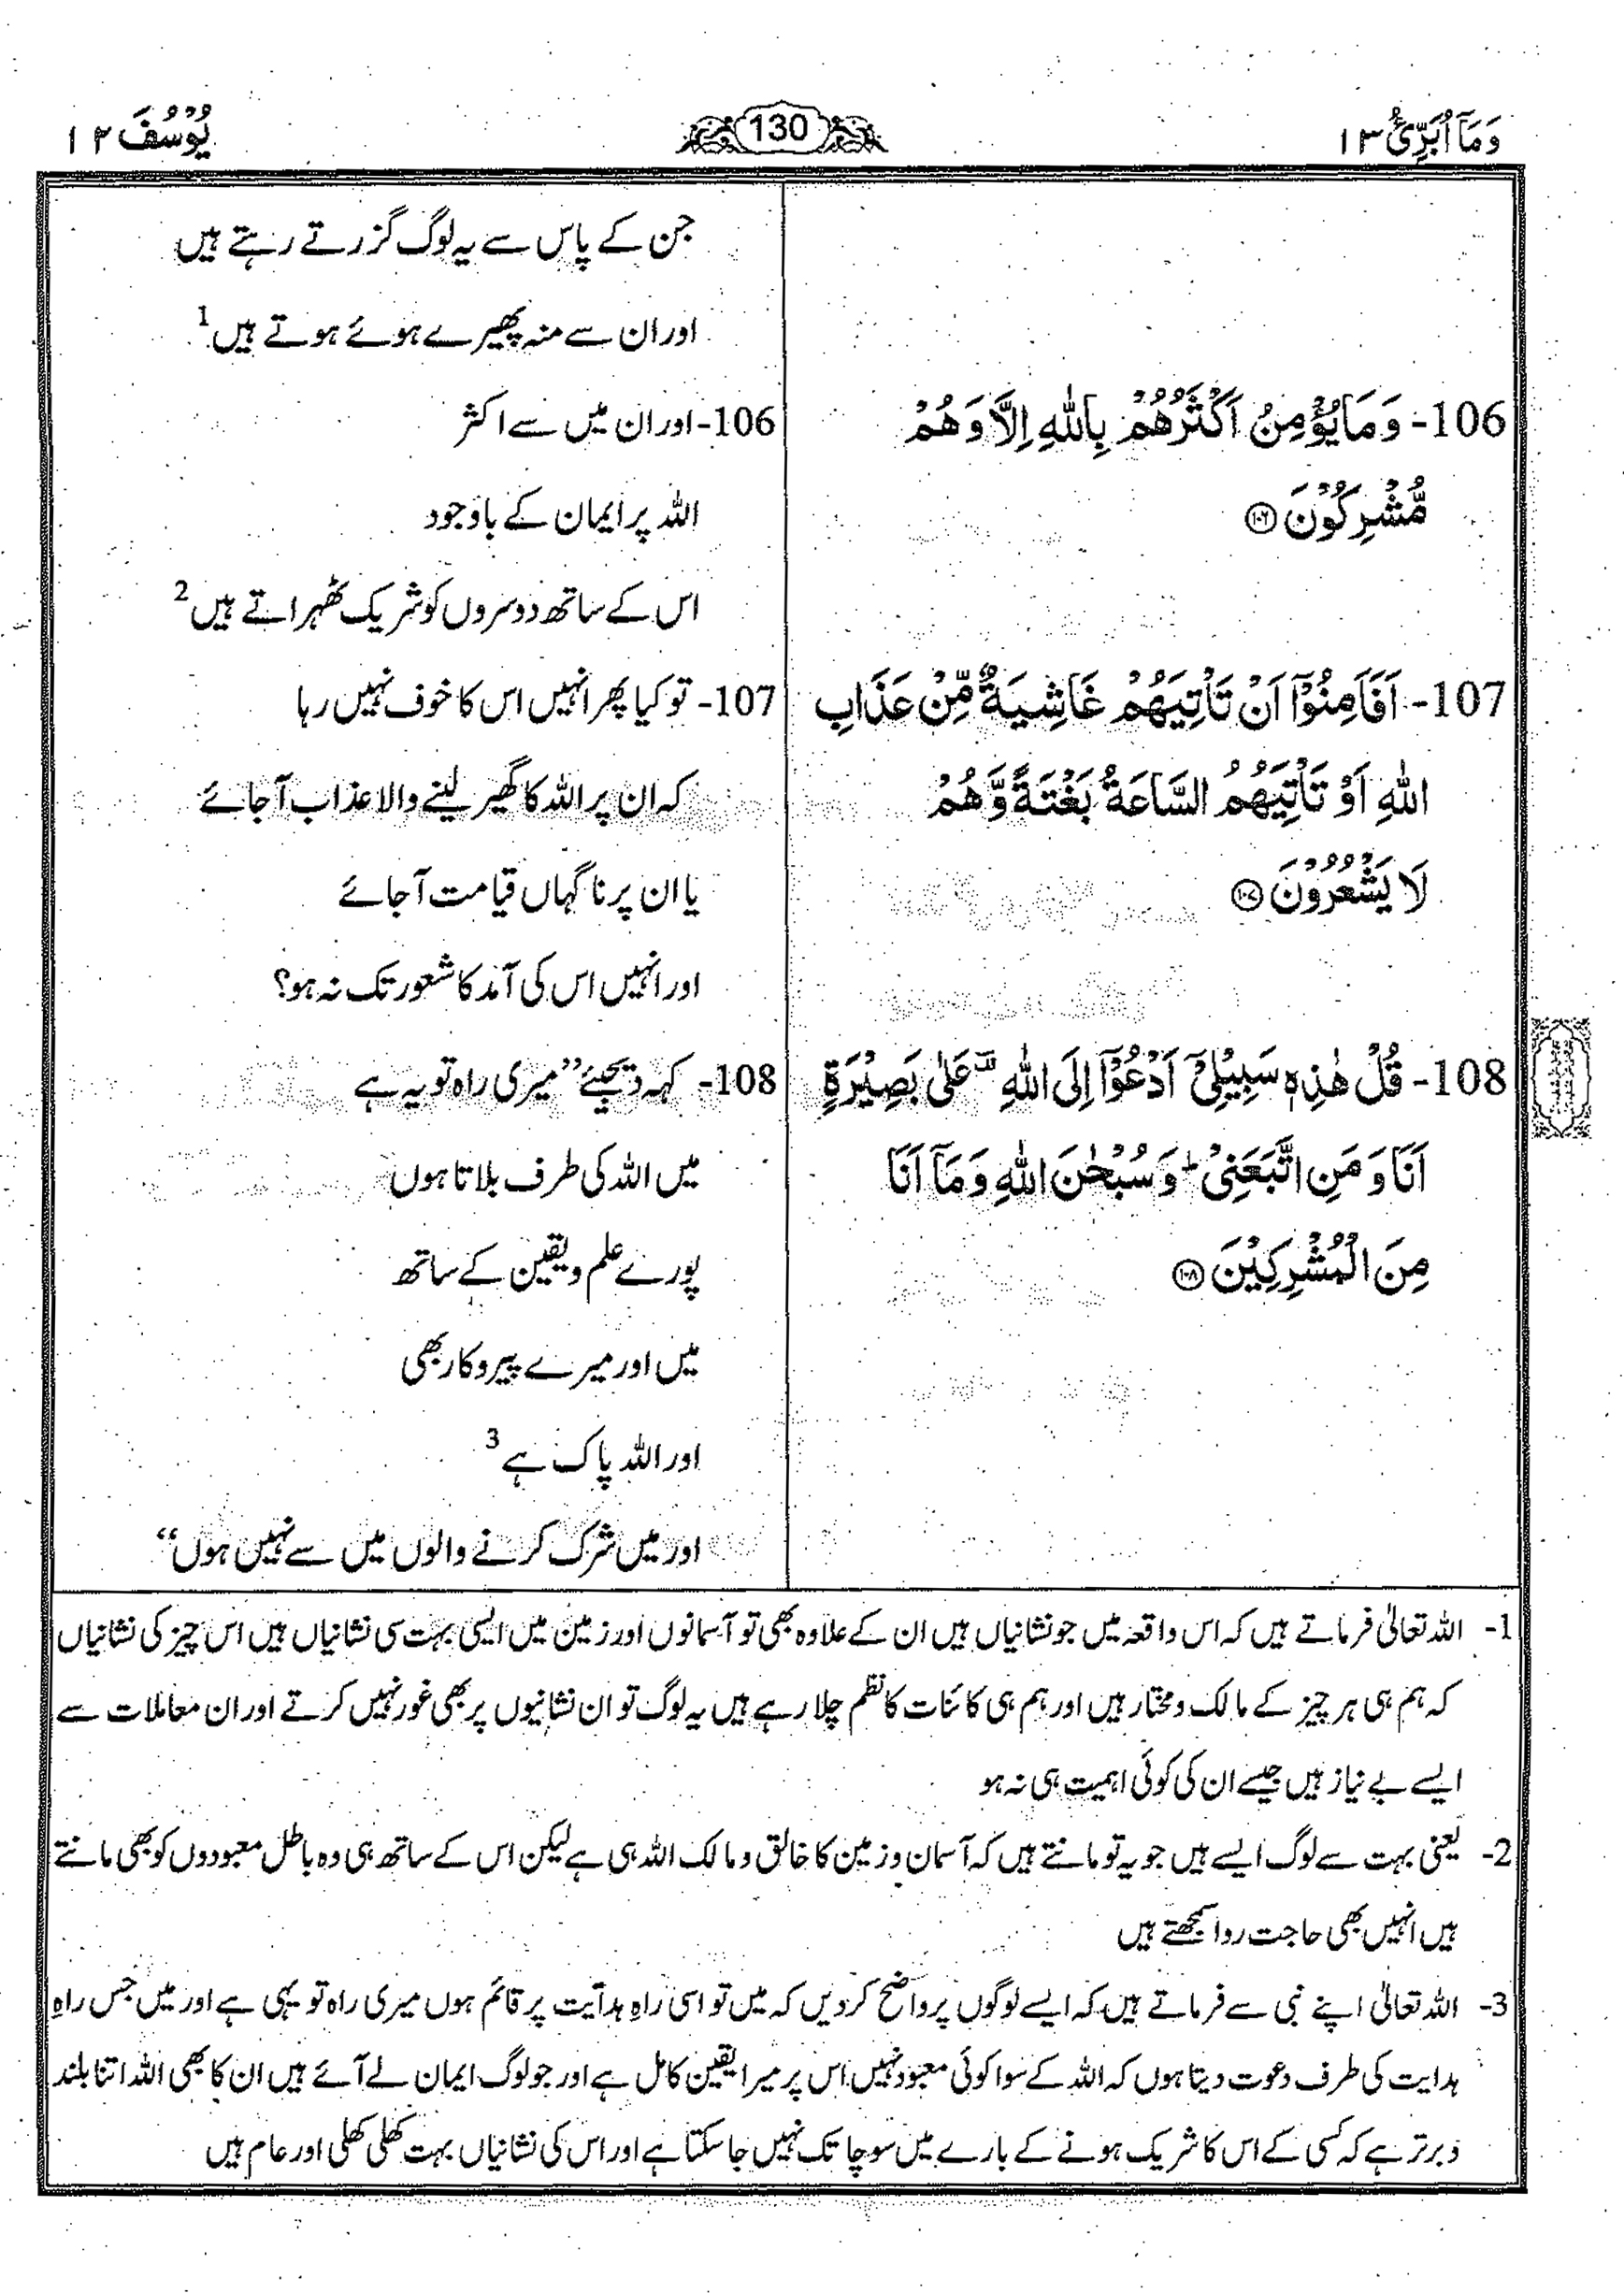 وَمَآ اُبَرِّئُ ۱۳
130
یُوْسُفَ ۱۲
106- وَمَا یُؤْمِنُ اَکْثَرُهُمْ بِاللّٰهِ اِلَّا وَهُمْ
مُّشْرِکُوْنَ ﴿۱۰۶﴾
107- اَفَاَمِنُوْۤا اَنْ تَاْتِیَهُمْ غَاشِیَةٌ مِّنْ عَذَابِ
اللّٰهِ اَوْ تَاْتِیَهُمُ السَّاعَةُ بَغْتَةً وَّهُمْ
لَا یَشْعُرُوْنَ ﴿۱۰۷﴾
108- قُلْ هٰذِهٖ سَبِیْلِیْۤ اَدْعُوْۤا اِلَی اللّٰهِ ۟ عَلٰی بَصِیْرَةٍ
اَنَا وَ مَنِ اتَّبَعَنِیْ ؕ وَ سُبْحٰنَ اللّٰهِ وَمَاۤ اَنَا
مِنَ الْمُشْرِکِیْنَ ﴿۱۰۸﴾
جن کے پاس سے یہ لوگ گزرتے رہتے ہیں
اور ان سے منہ پھیرے ہوئے ہوتے ہیں 1
106- اور ان میں سے اکثر
اللہ پر ایمان کے باوجود
اس کے ساتھ دوسروں کو شریک ٹھہراتے ہیں 2
107- تو کیا پھر انہیں اس کا خوف نہیں رہا
کہ ان پر اللہ کا گھیر لینے والا عذاب آجائے
یا ان پر ناگہاں قیامت آجائے
اور انہیں اس کی آمد کا شعور تک نہ ہو؟
108- کہہ دیجیئے ”میری راہ تو یہ ہے
میں اللہ کی طرف بلاتا ہوں
پورے علم و یقین کے ساتھ
میں اور میرے پیروکار بھی
اور اللہ پاک ہے 3
اور میں شرک کرنے والوں میں سے نہیں ہوں“
1- اللہ تعالیٰ فرماتے ہیں کہ اس واقعہ میں جو نشانیاں ہیں ان کے علاوہ بھی تو آسمانوں اور زمین میں ایسی بہت سی نشانیاں ہیں اس چیز کی نشانیاں
کہ ہم ہی ہر چیز کے مالک و مختار ہیں اور ہم ہی کائنات کا نظم چلا رہے ہیں یہ لوگ تو ان نشانیوں پر بھی غور نہیں کرتے اور ان معاملات سے
ایسے بے نیاز ہیں جیسے ان کی کوئی اہمیت ہی نہ ہو
2- یعنی بہت سے لوگ ایسے ہیں جو یہ تو مانتے ہیں کہ آسمان و زمین کا خالق و مالک اللہ ہی ہے لیکن اس کے ساتھ ہی وہ باطل معبودوں کو بھی مانتے
ہیں انہیں بھی حاجت روا سمجھتے ہیں
3- اللہ تعالیٰ اپنے نبی سے فرماتے ہیں کہ ایسے لوگوں پر واضح کردیں کہ میں تو اسی راہِ ہدآیت پر قائم ہوں میری راہ تو یہی ہے اور میں جس راہِ
ہدایت کی طرف دعوت دیتا ہوں کہ اللہ کے سوا کوئی معبود نہیں اس پر میرا یقین کامل ہے اور جو لوگ ایمان لے آئے ہیں ان کا بھی اللہ اتنا بلند
و برتر ہے کہ کسی کے اس کا شریک ہونے کے بارے میں سوچا تک نہیں جا سکتا ہے اور اس کی نشانیاں بہت کھلی کھلی اور عام ہیں